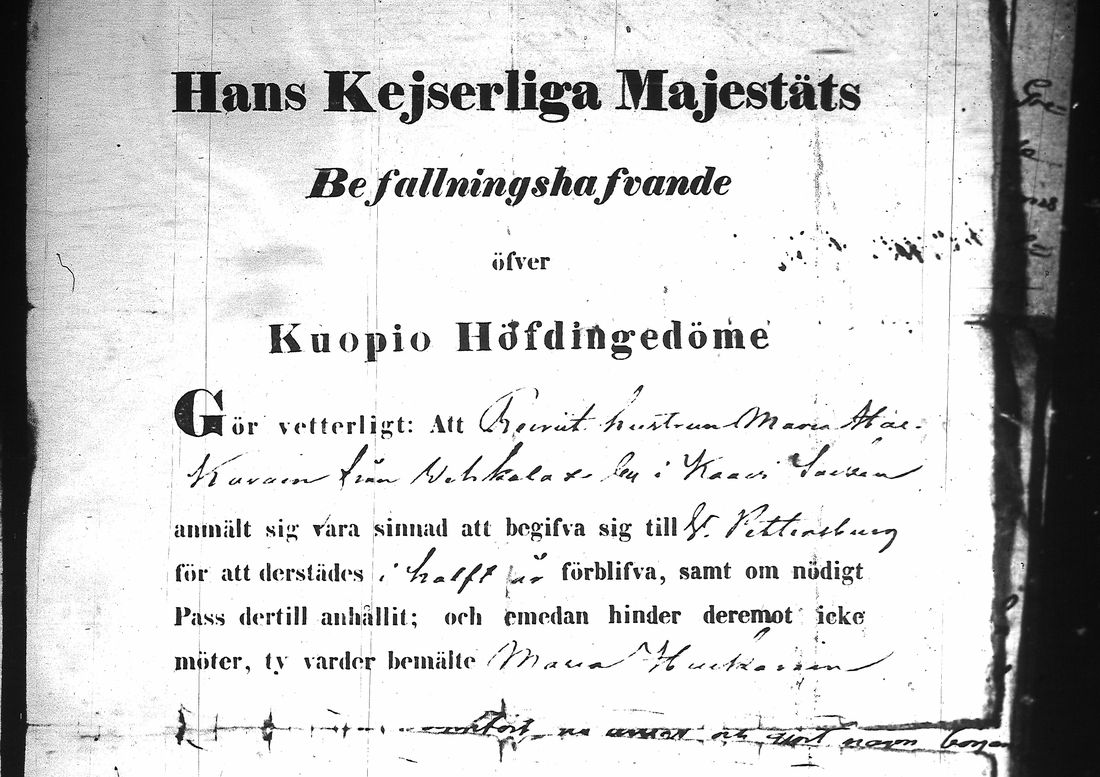 Hans Kejserliga Majestäts
Befallningshafvande
öfver
Kuopio Höfdingedöme
Gör vetterligt: Att Recrut hustrun Maria
från by i Kaavi Socken
anmält sig vara sinnad att begifva sig till St. Pettersburg
för att derstädes i halft år förblifva, samt om nödigt
Pass dertill anhållit; och emedan hinder deremot icke
möter, ty varder bemälte Maria
och